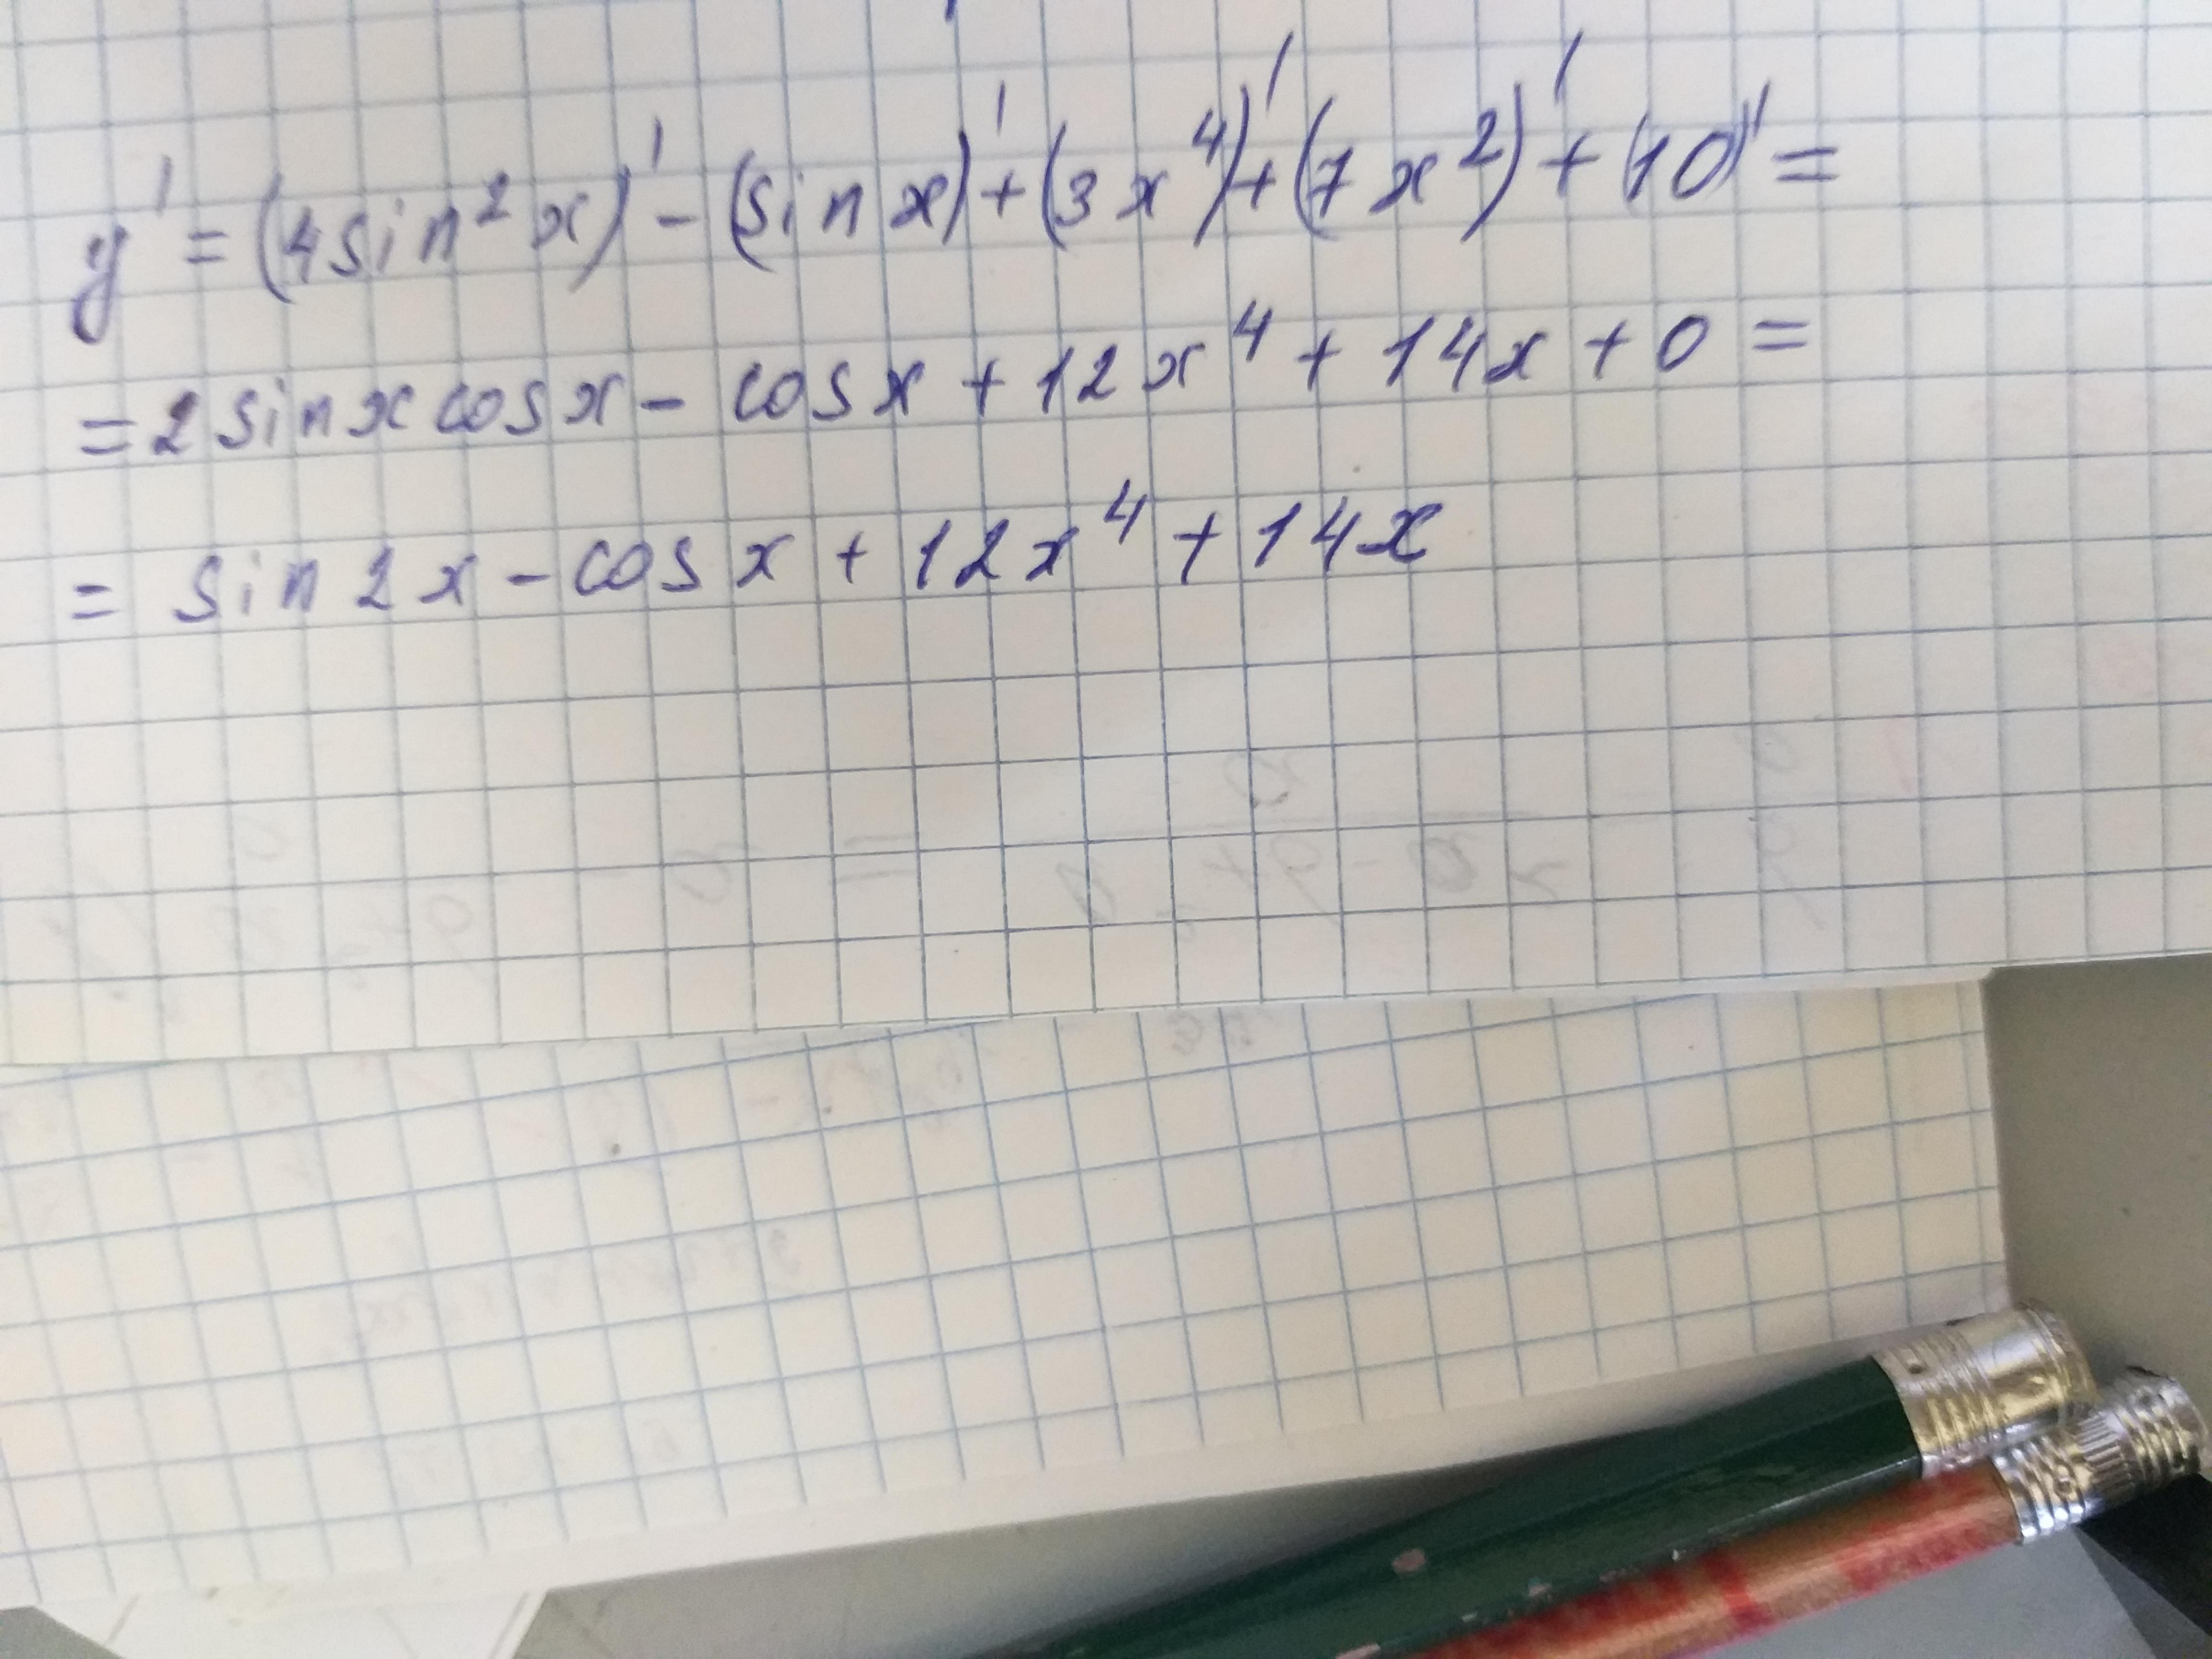 y' = (4sin²x)' - (sin x)' + (3x⁴)' + (7x²)' + (10)' =
= 2 sin x cos x - cos x + 12x⁴ + 14x + 0 =
= sin 2x - cos x + 12x⁴ + 14x